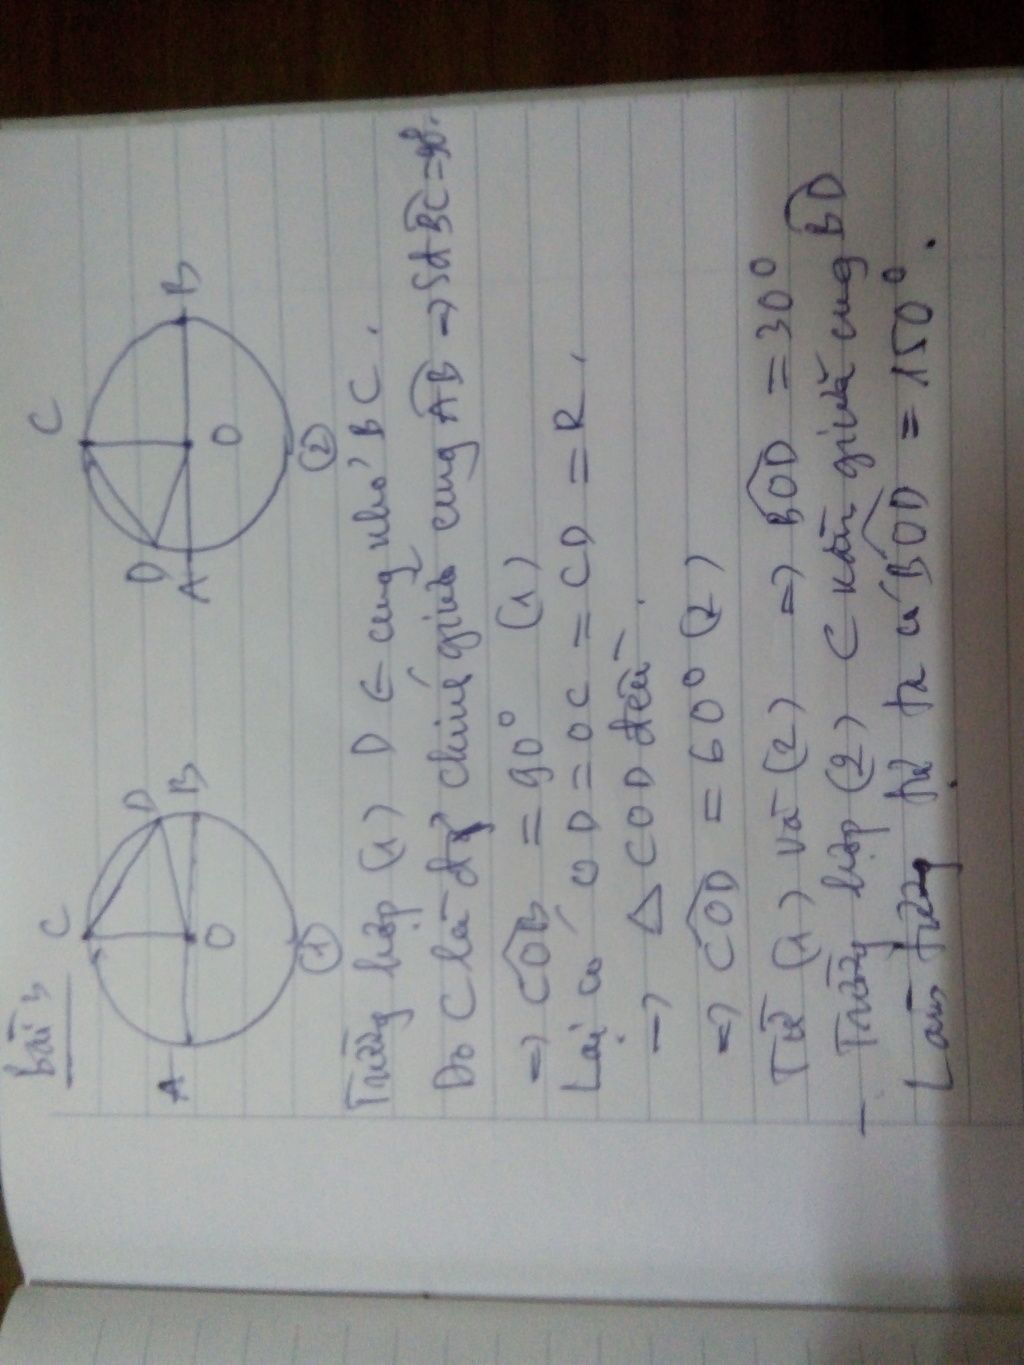 Bài 3
C
D
B
A
O
1
C
D
A
B
O
2
Trường hợp (1) D ∈ cung nhỏ BC.
Do C là chính giữa cung AB → sđ BC = 90°.
=> COB = 90° (1)
Lại có OD = OC = CD = R.
→ △ COD đều.
=> COD = 60° (2)
Từ (1) và (2) => BOD = 30°
- Trường hợp (2) C nằm giữa cung BD
Làm tương tự ta có BOD = 150°.